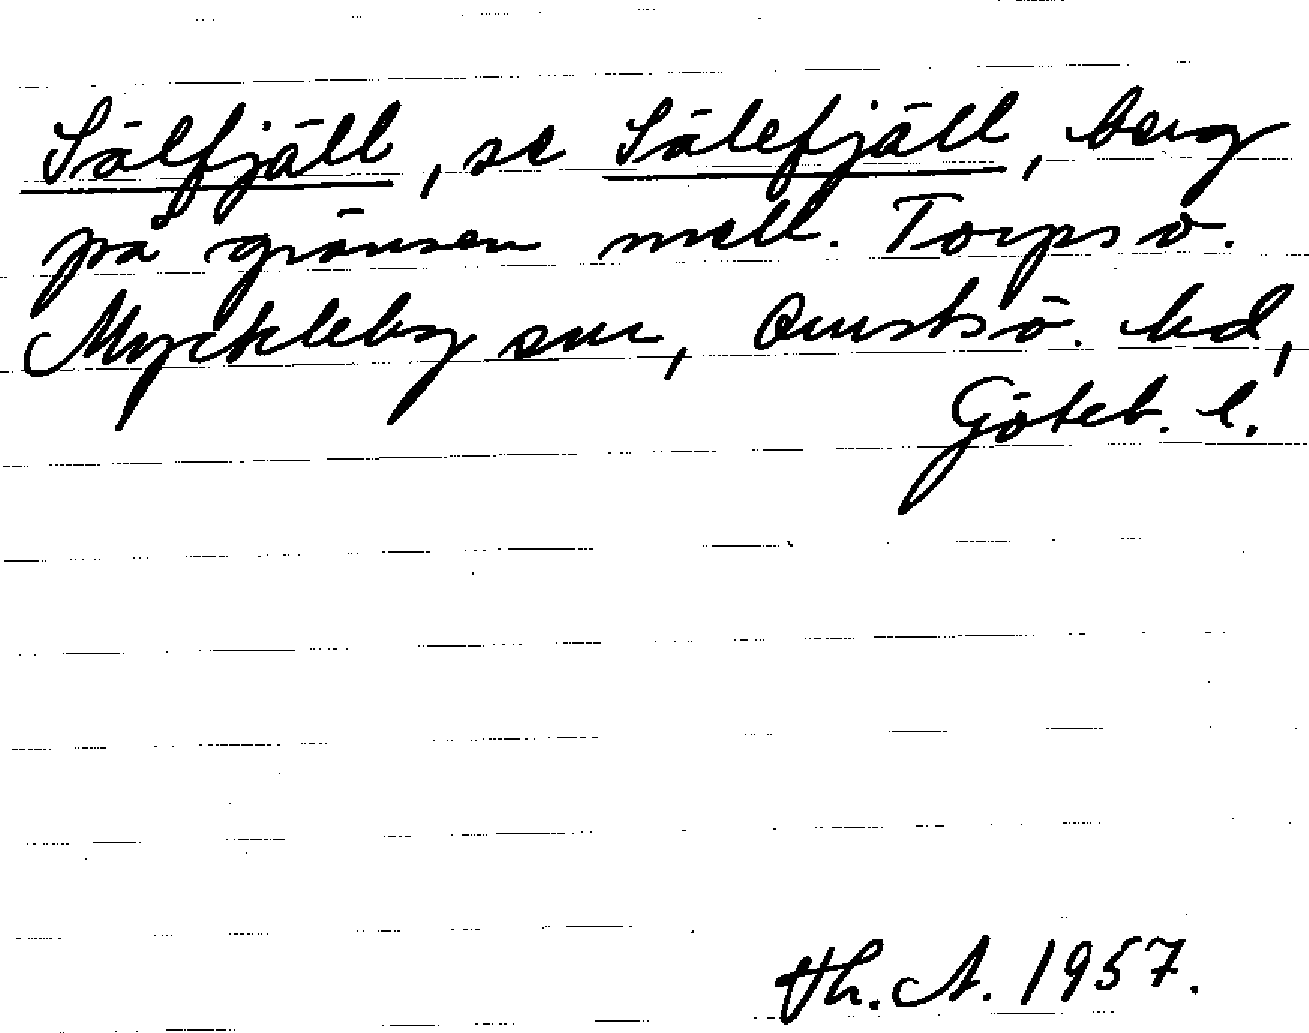 Sälfjäll, se Sälefjäll, berg
på gränsen mell. Torps o.
Myckleby snr, Orustsö. hd,
Göteb. l.
Th. A. 1957.